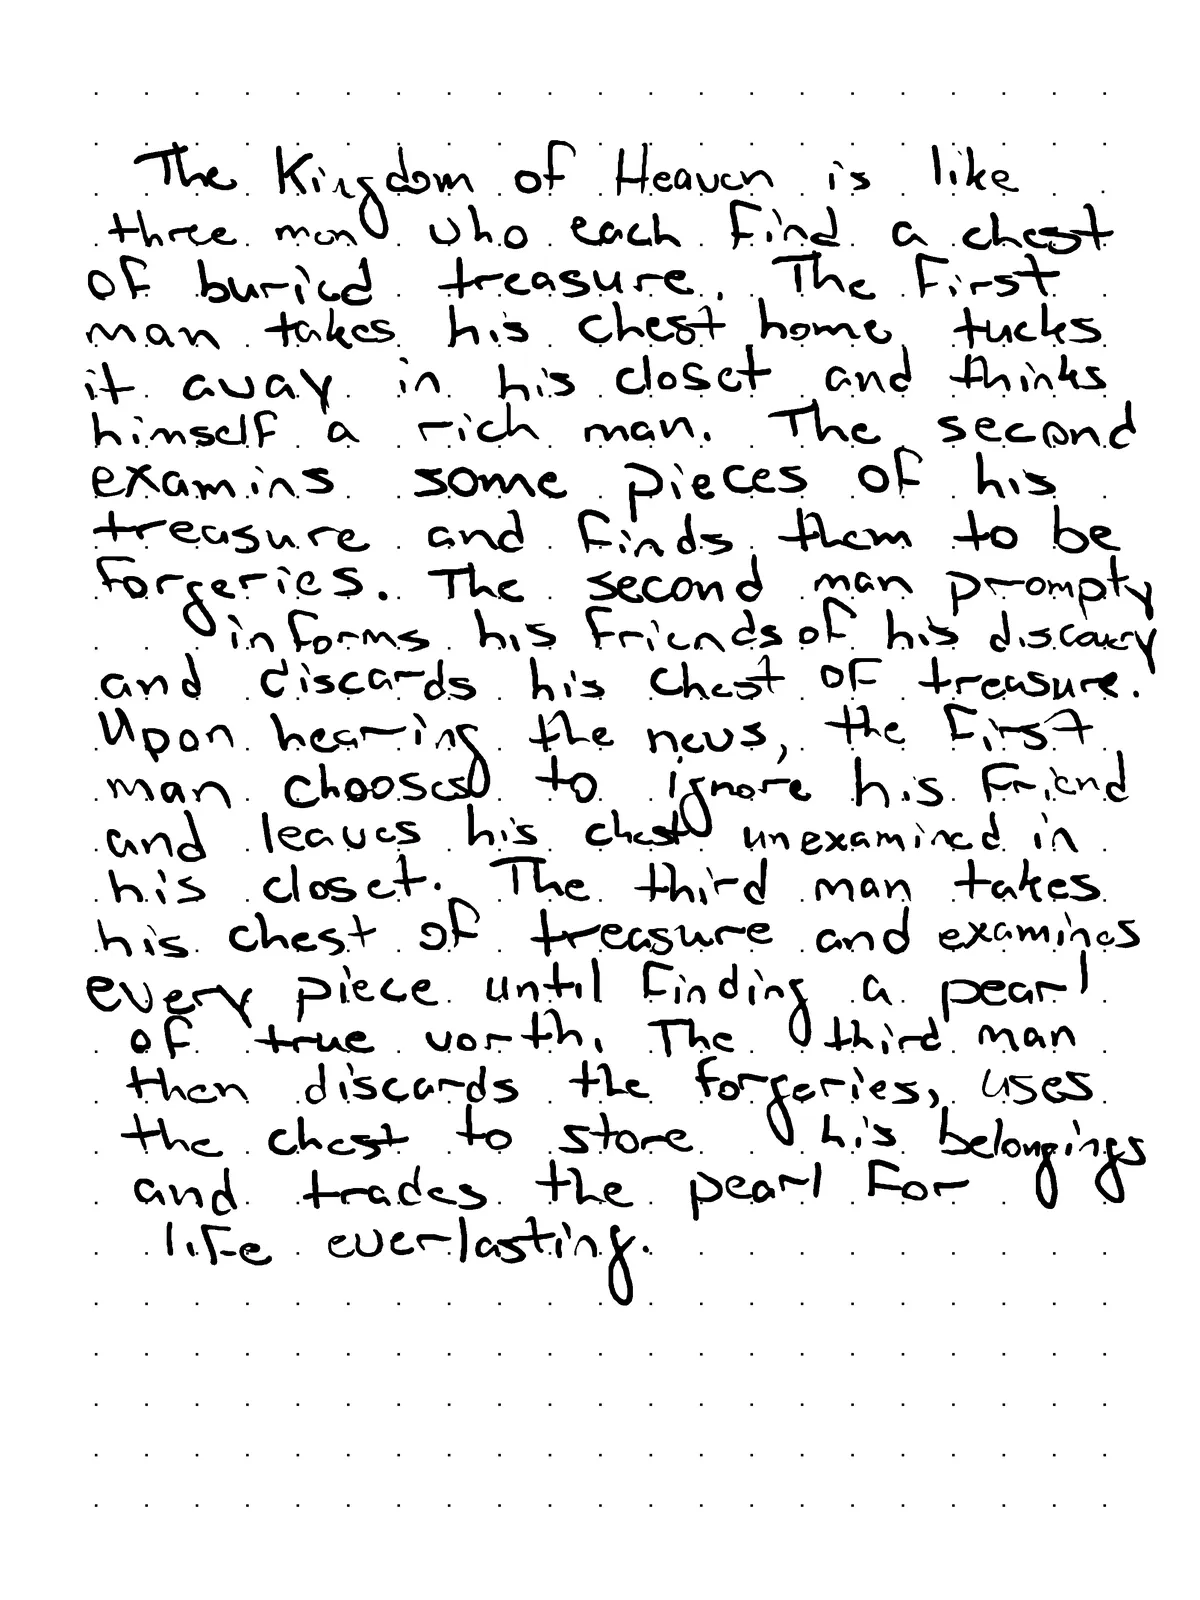 The Kingdom of Heaven is like
three men who each find a chest
of buried treasure. The first
man takes his chest home, tucks
it away in his closet and thinks
himself a rich man. The second
examins some pieces of his
treasure and finds them to be
forgeries. The second man prompty
informs his friends of his discovery
and discards his chest of treasure.
Upon hearing the news, the first
man chooses to ignore his friend
and leaves his chest unexamined in
his closet. The third man takes
his chest of treasure and examines
every piece until finding a pearl
of true worth. The third man
then discards the forgeries, uses
the chest to store his belongings
and trades the pearl for
life everlasting.